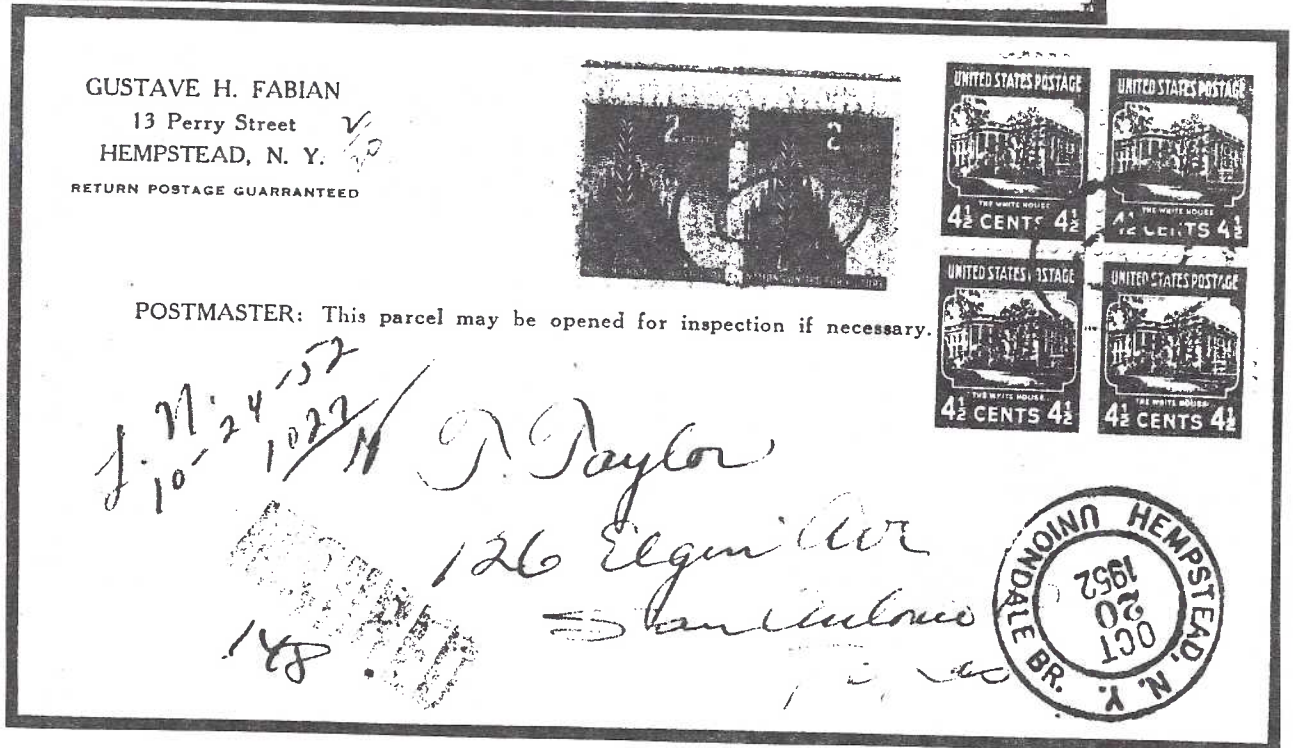 GUSTAVE H. FABIAN
13 Perry Street
HEMPSTEAD, N. Y.
RETURN POSTAGE GUARRANTEED
2
2
UNITED STATES POSTAGE
THE WHITE HOUSE
4½ CENTS 4½
UNITED STATES POSTAGE
THE WHITE HOUSE
4½ CENTS 4½
UNITED STATES POSTAGE
THE WHITE HOUSE
4½ CENTS 4½
UNITED STATES POSTAGE
THE WHITE HOUSE
4½ CENTS 4½
POSTMASTER: This parcel may be opened for inspection if necessary.
10-24-52
1022
T. Taylor
126 Elgin Ave
San Antonio
148
HEMPSTEAD, N. Y.
UNIONDALE BR.
OCT
20
1952